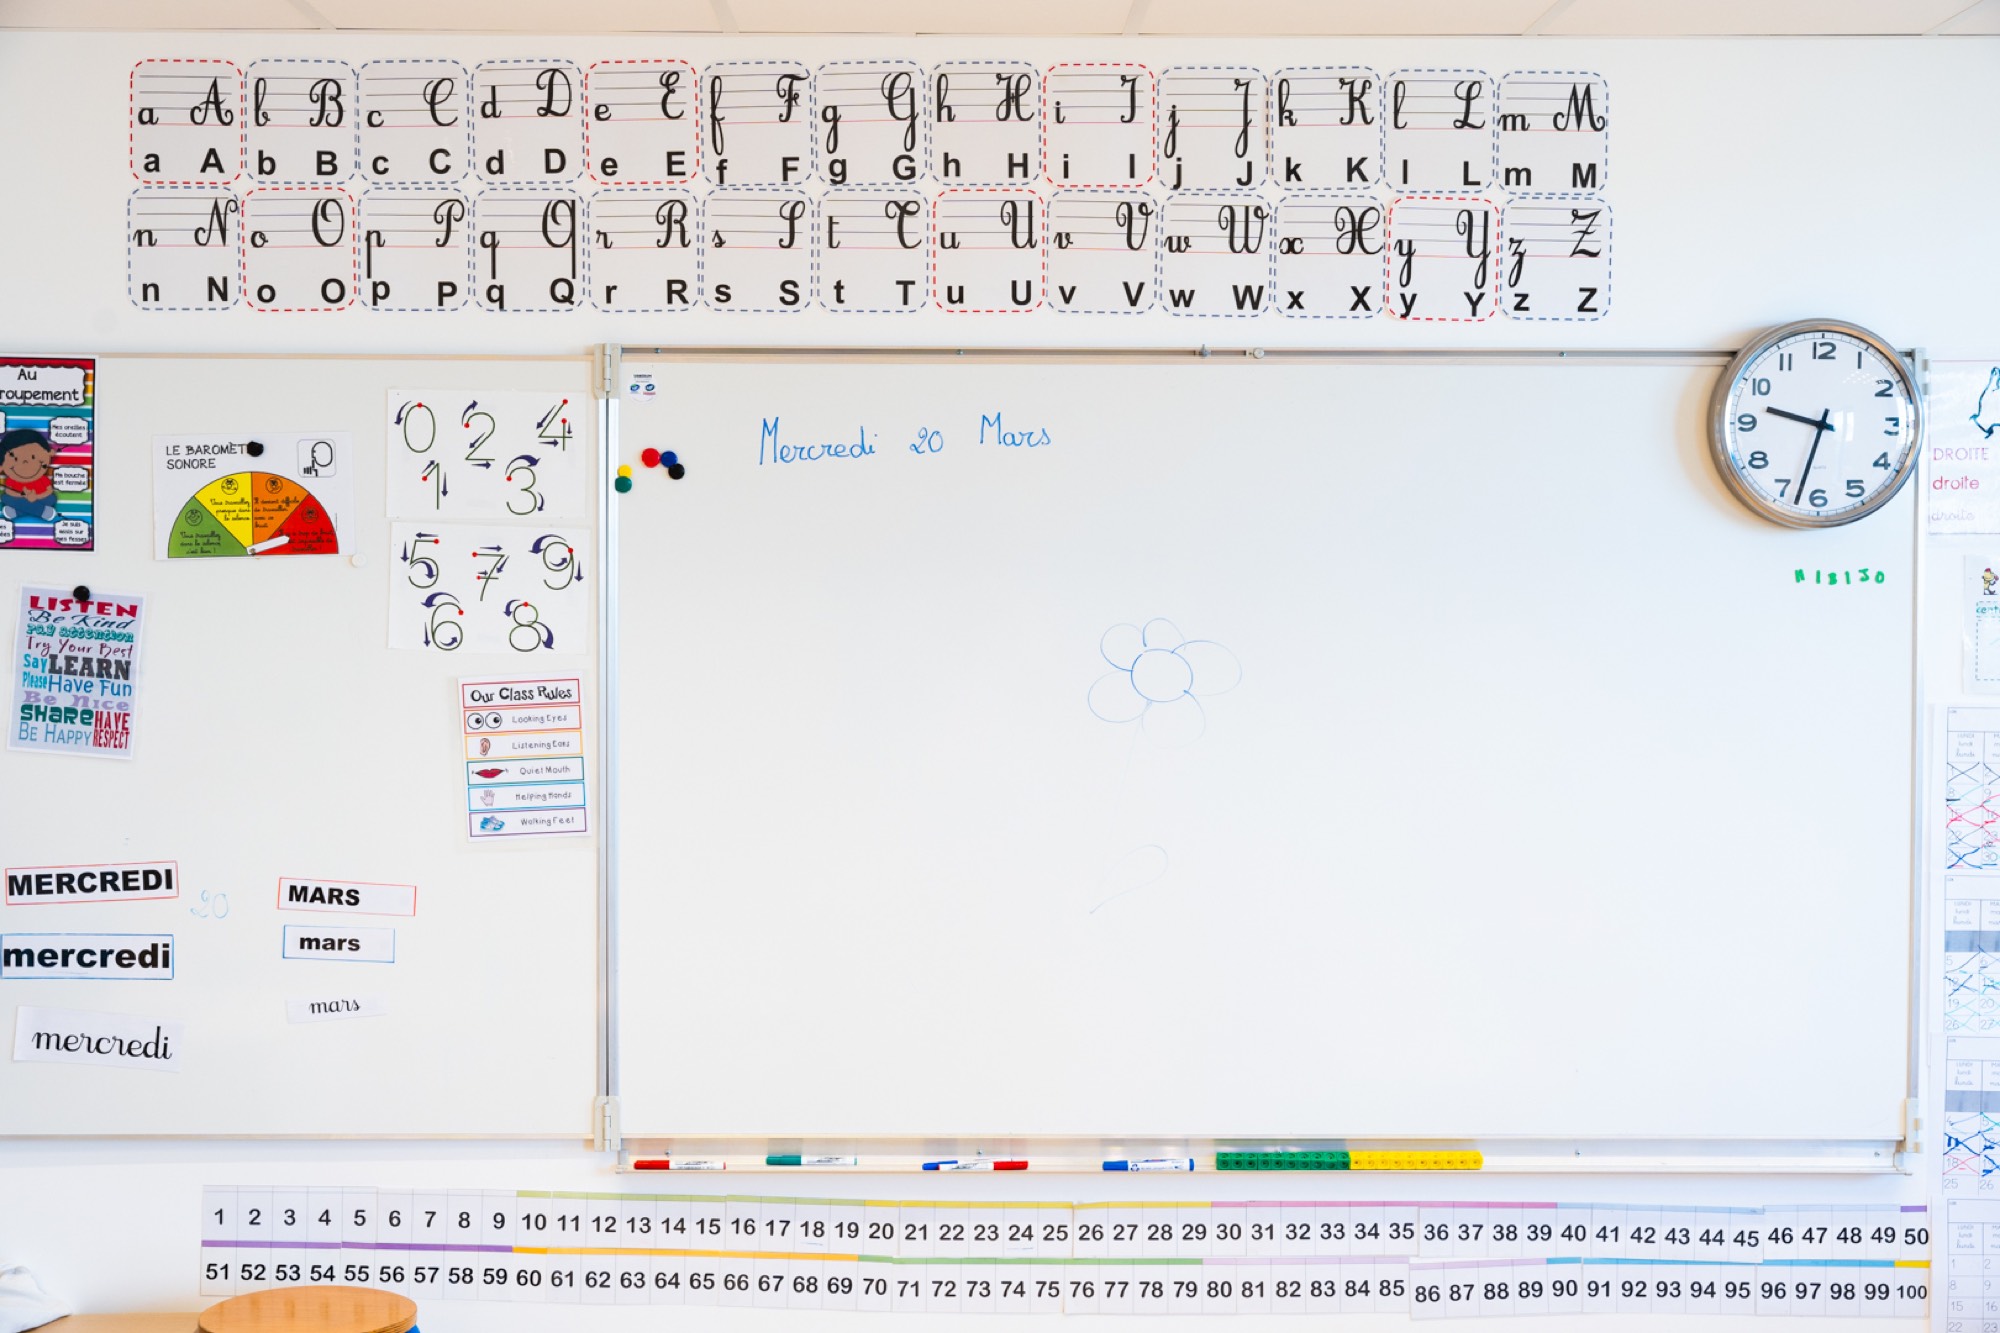 a A b B c C d D e E f F g G h H i I j J k K l L m M
a A b B c C d D e E f F g G h H i I j J k K l L m M
n N o O p P q Q r R s S t T u U v V w W x X y Y z Z
n N o O p P q Q r R s S t T u U v V w W x X y Y z Z
Au
roupement
Mes oreilles
écoutent
Ma bouche
est fermée
Je suis
assis sur
mes fesses
LE BAROMÈT
SONORE
0 2 4
1 3
5 7 9
6 8
LISTEN
Be Kind
Pay attention
Try Your Best
Say LEARN
Please Have Fun
Be Nice
SHARE HAVE
BE HAPPY RESPECT
Our Class Rules
Looking Eyes
Listening Ears
Quiet Mouth
Helping Hands
Walking Feet
MERCREDI 20 MARS
mercredi mars
mercredi mars
Mercredi 20 Mars
12 1 2 3 4 5 6 7 8 9 10 11
DROITE
droite
1 2 3 4 5 6 7 8 9 10 11 12 13 14 15 16 17 18 19 20 21 22 23 24 25 26 27 28 29 30 31 32 33 34 35 36 37 38 39 40 41 42 43 44 45 46 47 48 49 50
51 52 53 54 55 56 57 58 59 60 61 62 63 64 65 66 67 68 69 70 71 72 73 74 75 76 77 78 79 80 81 82 83 84 85 86 87 88 89 90 91 92 93 94 95 96 97 98 99 100